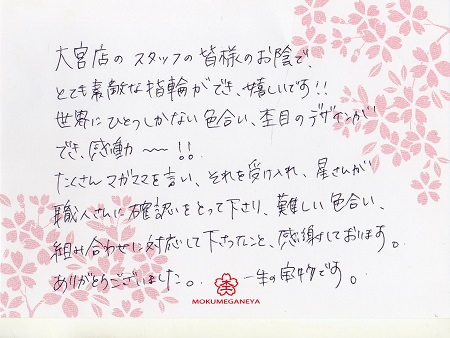 大宮店の スタッフの皆様のお陰で、
とても素敵な指輪ができ、嬉しいです!!
世界にひとつしかない色合い、杢目のデザインが
でき、感動〜〜!!
たくさんワガママを言い、それを受け入れ、星さんが
職人さんに確認をとって下さり、難しい色合い、
組み合わせに対応して下さったこと、感謝しております。
ありがとうございました。 一生の宝物です。
MOKUMEGANEYA